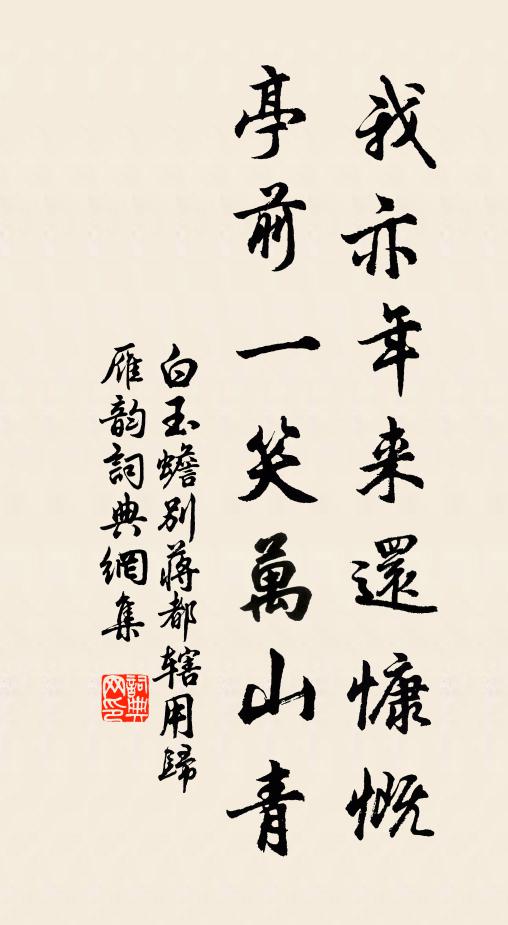 我亦年来還慷慨
亭前一笑萬山青
白玉蟾別蔣都轄用歸
雁韵詞典網集
詞典网印